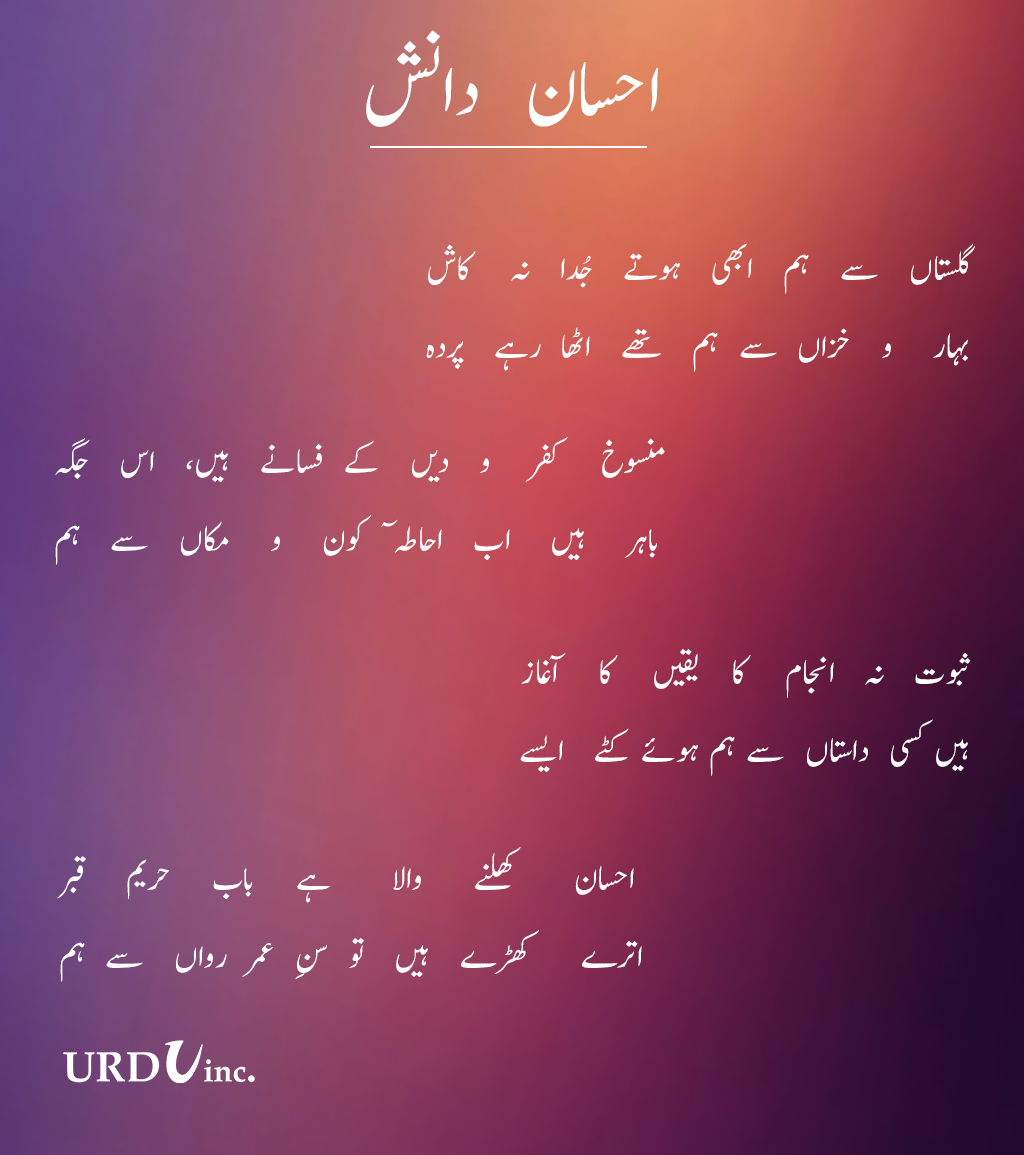 احسان دانش
گلستاں سے ہم ابھی ہوتے جُدا نہ کاش
بہار و خزاں سے ہم تھے اٹھا رہے پردہ
منسوخ کفر و دیں کے فسانے ہیں، اس جگہ
باہر ہیں اب احاطہ ٓ کون و مکاں سے ہم
ثبوت نہ انجام کا یقیں کا آغاز
ہیں کسی داستاں سے ہم ہوئے کٹے ایسے
احسان کھلنے والا ہے باب حریم قبر
اترے کھڑے ہیں تو سنِ عمر رواں سے ہم
URDU inc.